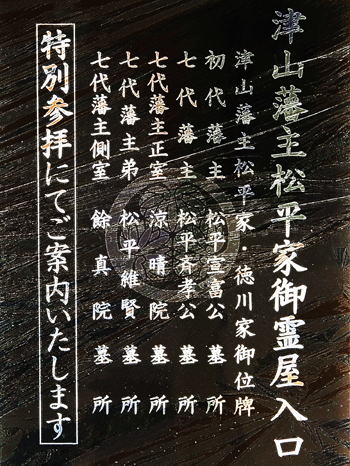 津山藩主松平家御霊屋入口
津山藩主松平家・徳川家御位牌
初代藩主 松平宣富公 墓所
七代藩主 松平斉孝公 墓所
七代藩主正室 涼晴院 墓所
七代藩主弟 松平維賢 墓所
七代藩主側室 餘真院 墓所
特別参拝にてご案内いたします